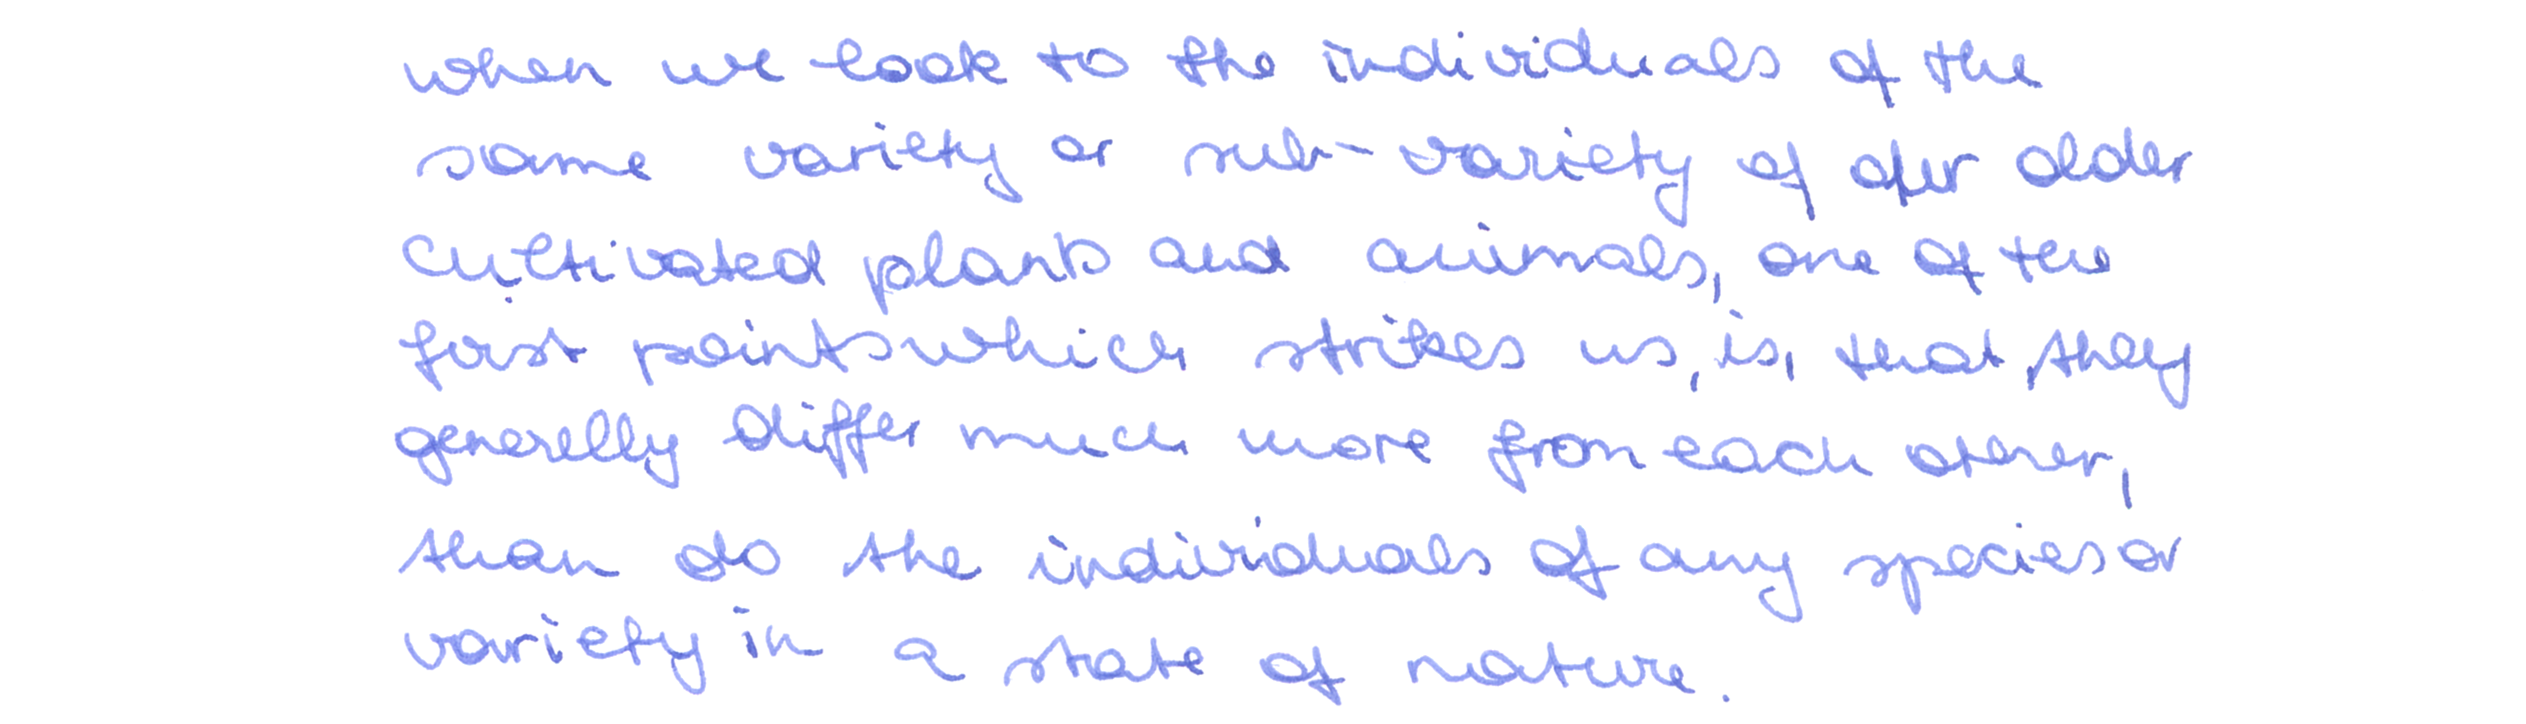 when we look to the individuals of the
same variety or sub-variety of our older
cultivated plants and animals, one of the
first points which strikes us, is, that, they
generelly differ much more from each other,
than do the individuals of any species or
variety in a state of nature.